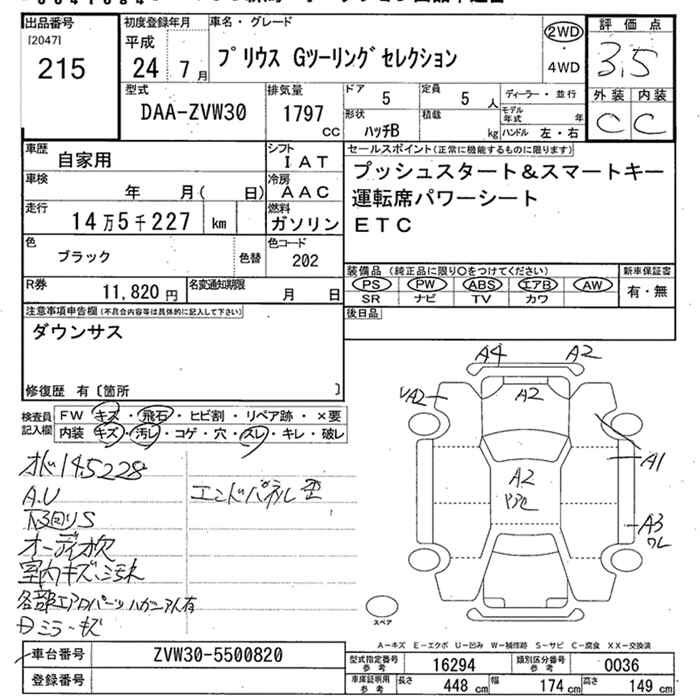 出品番号
[2047]
215
初度登録年月
平成
24 7月
車名・グレード
プリウス Gツーリングセレクション
2WD
・
4WD
評価点
3.5
外装 内装
C C
型式
DAA-ZVW30
排気量
1797
CC
ドア 5
定員 5 人
ディーラー・並行
形状 ハッチB
積載 kg
モデル年式 年
ハンドル 左・右
車歴
自家用
シフト
IAT
車検
年 月( 日)
冷房
AAC
走行
14万5千227 km
燃料
ガソリン
色
ブラック
色替
色コード
202
R券
11,820円
名変通知期限
月 日
セールスポイント(正常に機能するものに限ります)
プッシュスタート&スマートキー
運転席パワーシート
ETC
装備品 (純正品に限り○をつけてください)
PS・PW・ABS・エアB・AW
SR ナビ TV カワ
新車保証書
有・無
後日品
注意事項申告欄(不具合内容等は具体的に記入して下さい)
ダウンサス
修復歴 有〔箇所 〕
検査員記入欄
FW キズ・飛石・ヒビ割・リペア跡・×要
内装 キズ・汚レ・コゲ・穴・スレ・キレ・破レ
オド145228
A.U
下回りS
オーディオ欠
室内キズ、汚れ
各部エアロパーツハガニアト有
Dミラーキズ
エンドパネル歪
A4 A2
A2
A2
A1
A2
A3
ワレ
スペア
A-キズ E-エクボ U-凹み W-補修跡 S-サビ C-腐食 XX-交換済
車台番号
ZVW30-5500820
登録番号
型式指定番号 参考
16294
類別区分番号 参考
0036
車庫証明用 参考
長さ 448 cm
幅 174 cm
高さ 149 cm